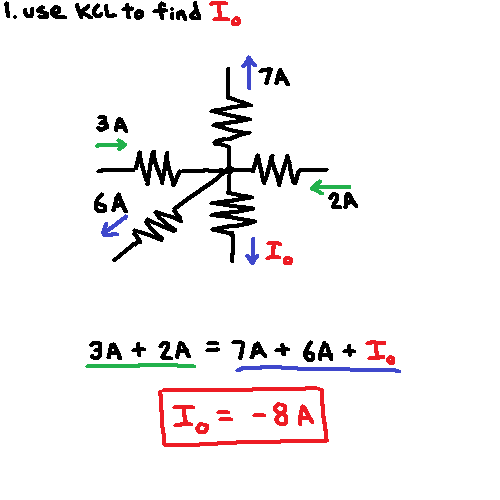 1. use KCL to find I₀
7A
3A
6A
2A
I₀
3A + 2A = 7A + 6A + I₀
I₀ = -8A